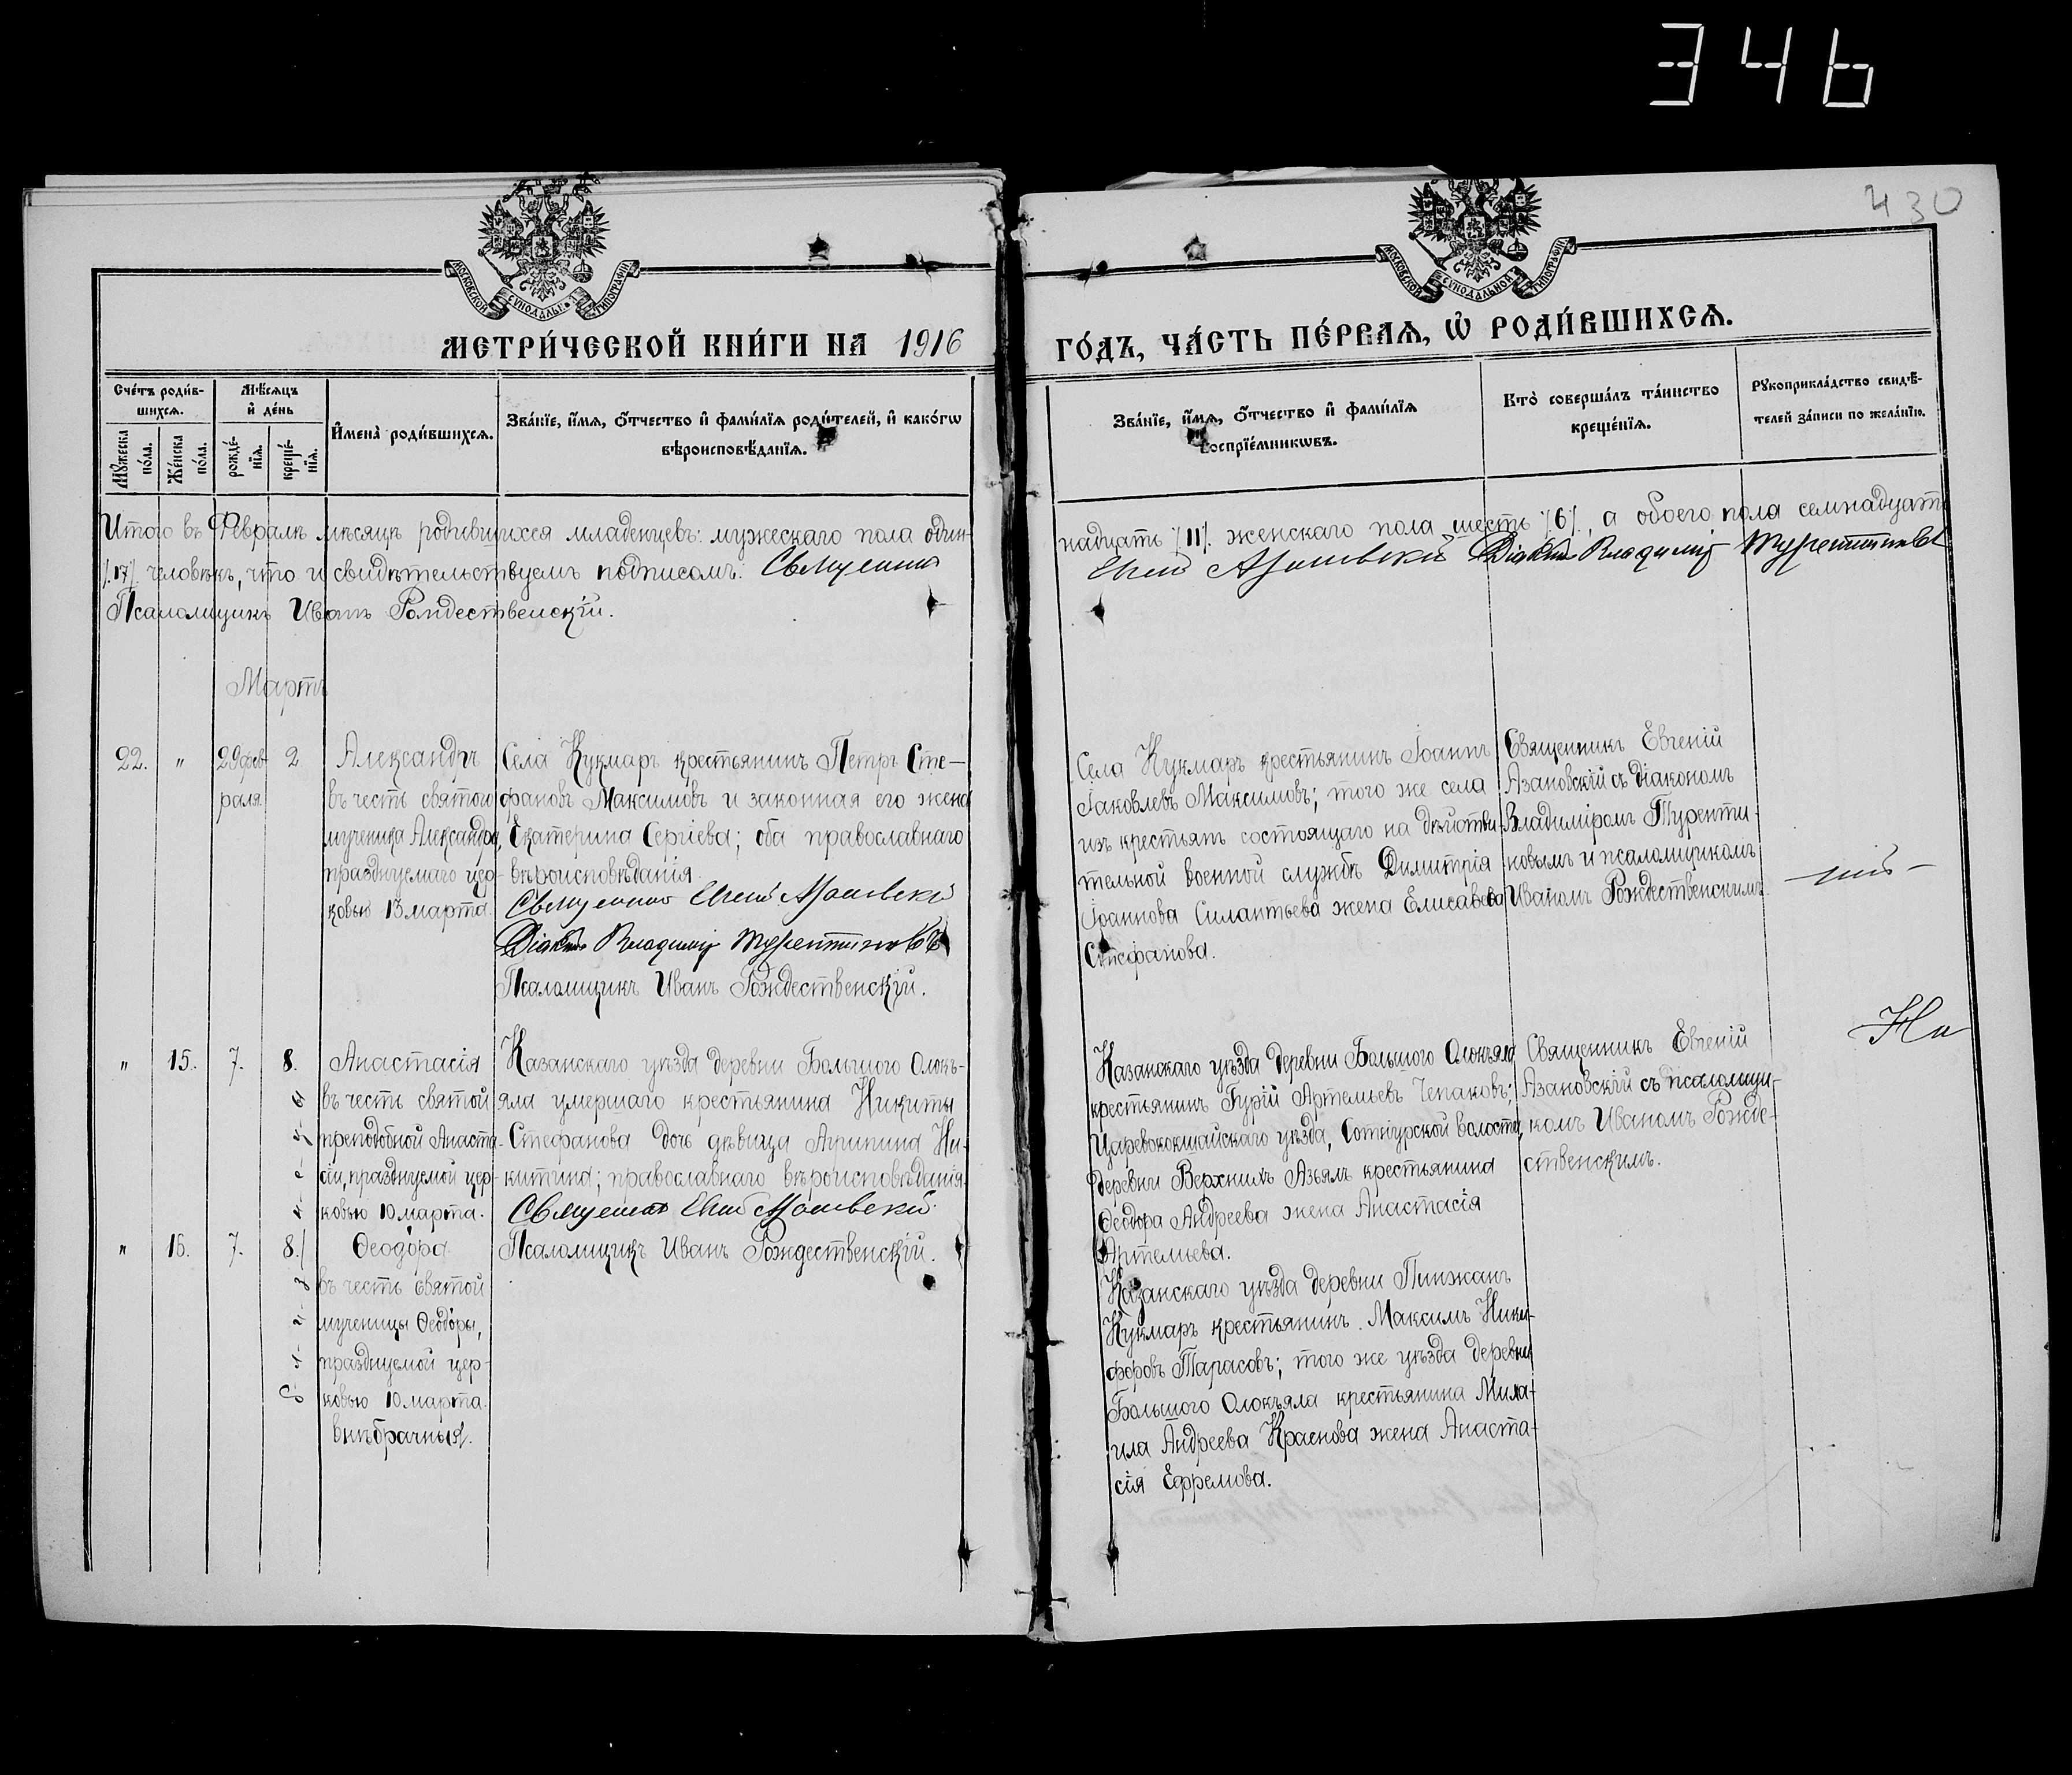 346
430
МОСКОВСКОЙ СѴНОДАЛЬНОЙ ТИПОГРАФІИ
МОСКОВСКОЙ СѴНОДАЛЬНОЙ ТИПОГРАФІИ
МЕТРИ́ЧЕСКОЙ КНИ́ГИ НА 1916
ГО́ДЪ, ЧА́СТЬ ПЕ́РВАѦ, Ѡ҆ РОДИ́ВШИХСѦ.
Сче́тъ роди́в-
шихсѧ.
Мꙋ́жеска
по́ла.
Же́нска
по́ла.
Мѣ́сѧцъ
и҆ де́нь
рожде́-
нїѧ.
креще́-
нїѧ.
И҆мена̀ роди́вшихсѧ.
Зва́нїе, и҆́мѧ, ѻ҆́тчество и҆ фамѝлїѧ роди́телей, и҆ како́гѡ
вѣроисповѣ́данїѧ.
Зва́нїе, и҆́мѧ, ѻ҆́тчество и҆ фамѝлїѧ
воспрїе́мникѡвъ.
Кто̀ соверша́лъ та́инство
креще́нїѧ.
Рꙋкоприкла́дство свидѣ́-
телей за́писи по жела́нїю.
Итого въ Февралѣ мѣсяцѣ родившихся младенцевъ: мужескаго пола один-
надцать /11/. женскаго пола шесть /6/., а обоего пола семнадцать
/.17/. человѣкъ, что и свидѣтельствуемъ подписомъ: Священникъ
Евгеній Азановскій Діаконъ Владиміръ Турентиновъ
Псаломщикъ Иванъ Рождественскій.
Мартъ
22.
"
29 фев
раля.
2
Александръ
въ честь святого
мученика Александра,
празднуемаго цер-
ковью 13 марта.
Села Кукмаръ крестьянинъ Петръ Сте-
фановъ Максимовъ и законная его жена
Екатерина Сергіева; оба православнаго
вѣроисповѣданія.
Священникъ Евгеній Азановскій
Діаконъ Владиміръ Турентиновъ
Псаломщикъ Иванъ Рождественскій.
Села Кукмаръ крестьянинъ Іоаннъ
Іаковлевъ Максимовъ; того же села
изъ крестьянъ состоящаго на дѣйстви-
тельной военной службѣ Димитрія
Іоаннова Силантьева жена Елисавета
Стефанова.
Священникъ Евгеній
Азановскій съ діакономъ
Владиміромъ Туренти-
новымъ и псаломщикомъ
Иваномъ Рождественскимъ.
"
15.
7.
8.
Анастасія
въ честь святой
преподобной Анаста-
сіи, празднуемой цер-
ковью 10 марта.
Казанскаго уѣзда деревни Большого Олокъ-
яла умершаго крестьянина Никиты
Стефанова дочь дѣвица Агрипина Ни-
китина; православнаго вѣроисповѣданія.
Священникъ Евгеній Азановскій.
Псаломщикъ Иванъ Рождественскій.
Казанскаго уѣзда деревни Большого Олокъяла
крестьянинъ Гурій Артемьевъ Чепаковъ;
Царевококшайскаго уѣзда, Сотнурской волости,
деревни Верхнихъ Азъялъ крестьянина
Ѳеодора Андреева жена Анастасія
Артемьева.
Священникъ Евгеній
Азановскій съ псаломщи-
комъ Иваномъ Рожде-
ственскимъ.
"
16.
7.
8.
Ѳеодора
въ честь святой
мученицы Ѳеодоры,
празднуемой цер-
ковью 10 марта.
внѣбрачныя.
Казанскаго уѣзда деревни Пинжанъ
Кукмаръ крестьянинъ Максимъ Ники-
форовъ Тарасовъ; того же уѣзда деревни
Большого Олокъяла крестьянина Миха-
ила Андреева Краснова жена Анаста-
сія Ефремова.